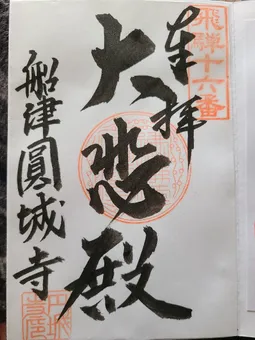 飛騨十六番
奉拝
大悲殿
船津圓城寺